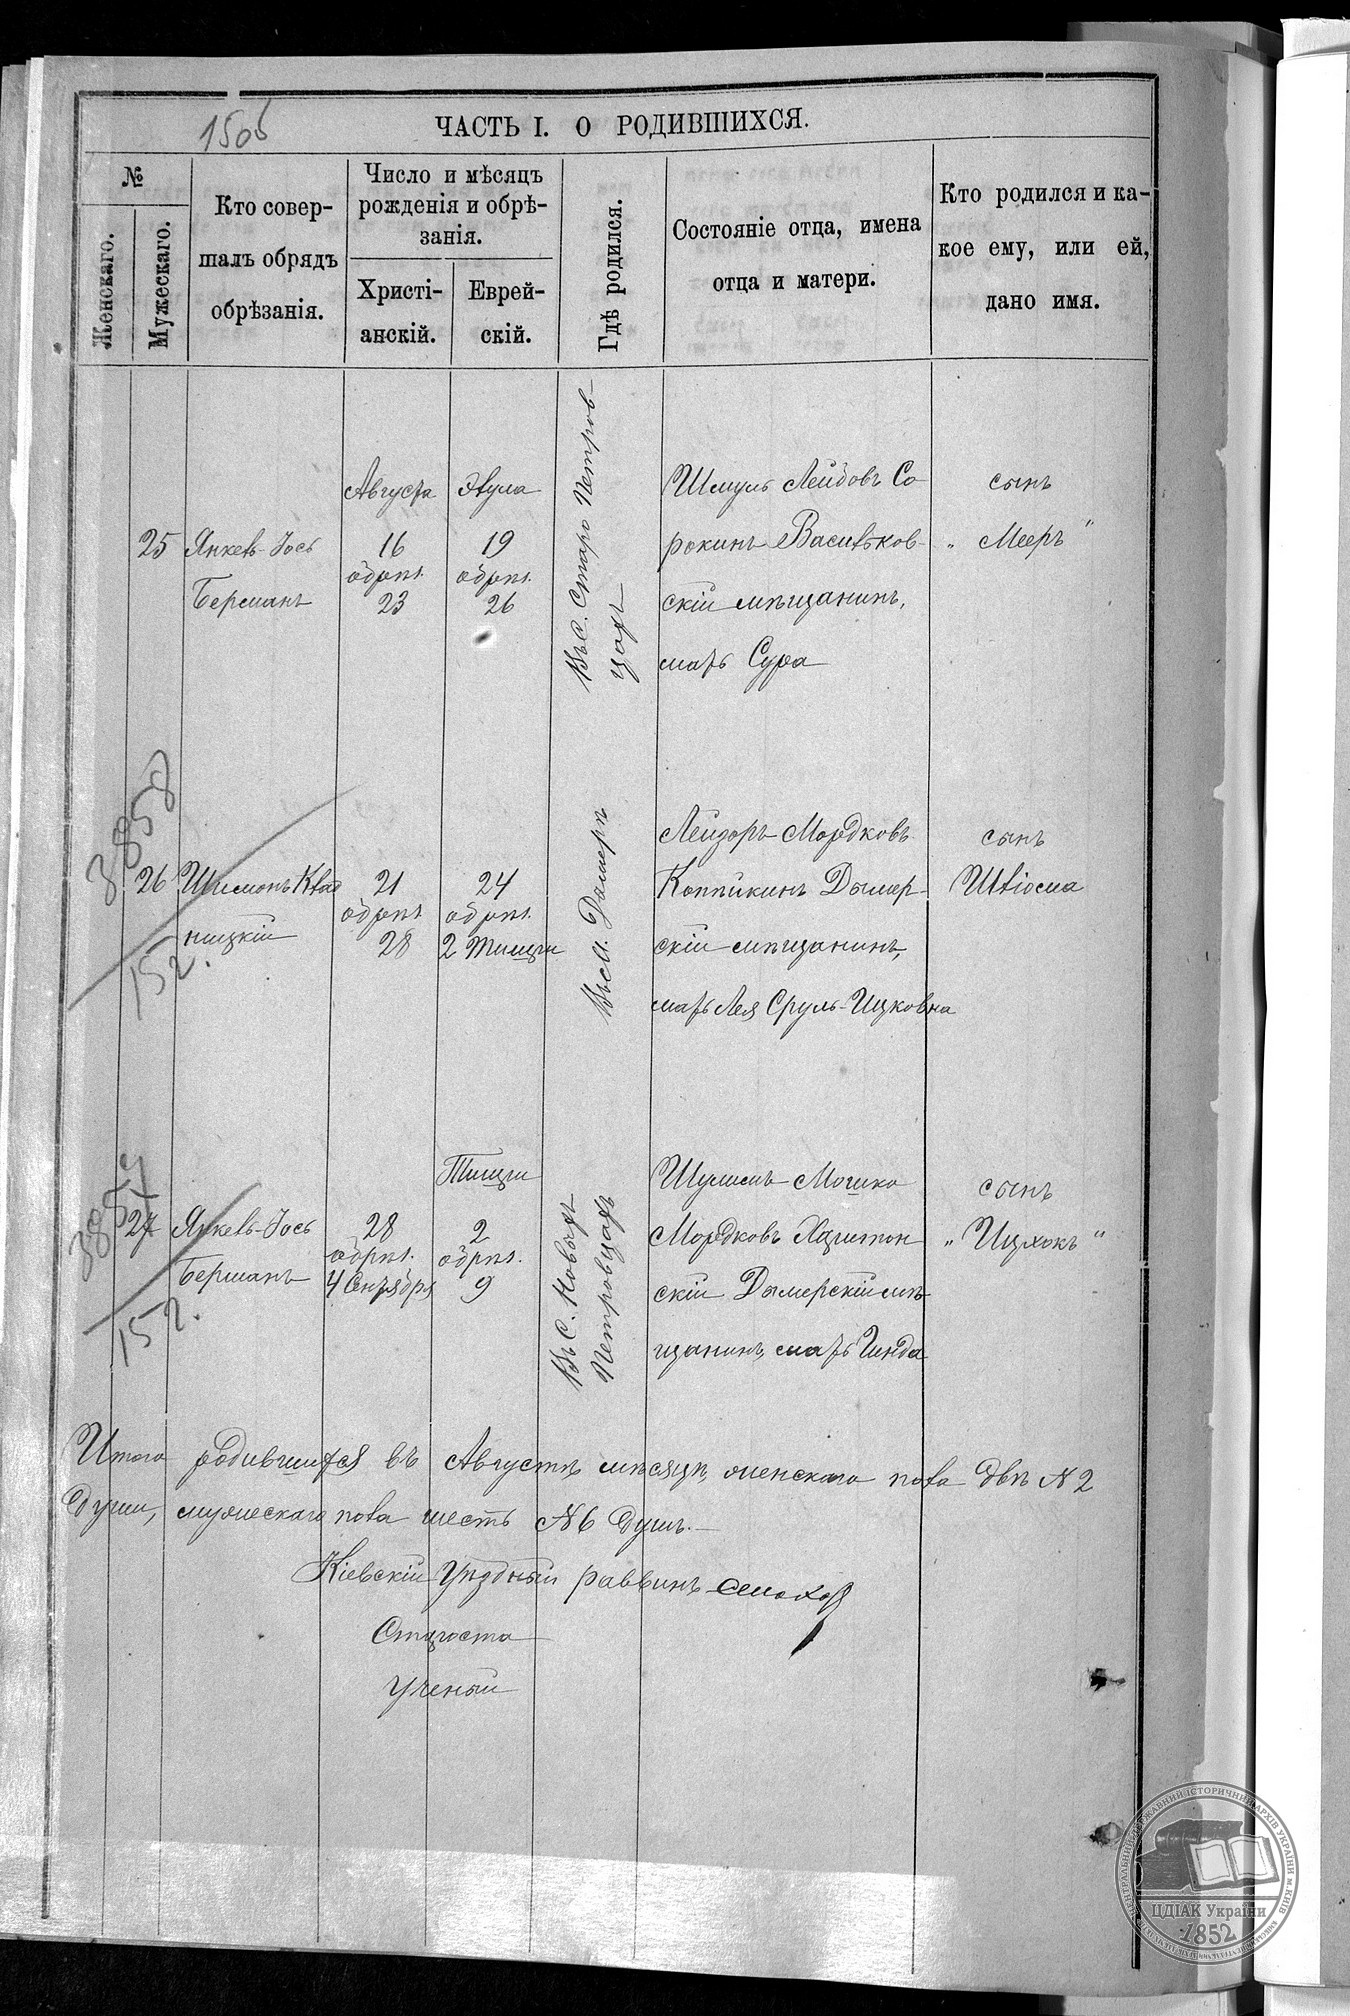 1505
ЧАСТЬ I. О РОДИВШИХСЯ.
№
Женскаго.
Мужескаго.
Кто совер-
шалъ обрядъ
обрѣзанія.
Число и мѣсяцъ
рожденія и обрѣ-
занія.
Христі-
анскій.
Еврей-
скій.
Гдѣ родился.
Состояніе отца, имена
отца и матери.
Кто родился и ка-
кое ему, или ей,
дано имя.
25
Янкель-Іось
Берманъ
Августа
16
обрѣз.
23
Элула
19
обрѣз.
26
Въ с. Старо Петров-
цахъ
Шмуль Лейбовъ Со
рокинъ Васильков-
скій мѣщанинъ,
мать Сура
сынъ
„ Мееръ "
3858
26
152.
Шимонъ
ницкій
21
обрѣз.
28
24
обрѣз.
2 Тишри
Въ м. Дымерѣ
Лейзоръ Мордковъ
Коппикинъ Дымер-
скій мѣщанинъ,
мать Лея Сруль-Ицковна
сынъ
Шліома
27
152.
Янкель-Іось
Берманъ
28
обрѣз.
4 Сентября
Тишри
2
обрѣз.
9
Въ с. Новыхъ
Петровцахъ
Шулимъ Мошко
Мордковъ
скій Дымерскій мѣ
щанинъ, мать Гинда
сынъ
„ Ицхокъ "
Итого родившихся въ Августѣ мѣсяцѣ, женскаго пола двѣ N 2
души, мужескаго пола шесть N 6 душъ.
Кіевскій Уѣздный раввинъ
Староста
Ученый
ЦЕНТРАЛЬНИЙ ДЕРЖАВНИЙ ІСТОРИЧНИЙ АРХІВ УКРАЇНИ м. КИЇВ
ЦДІАК України
1852